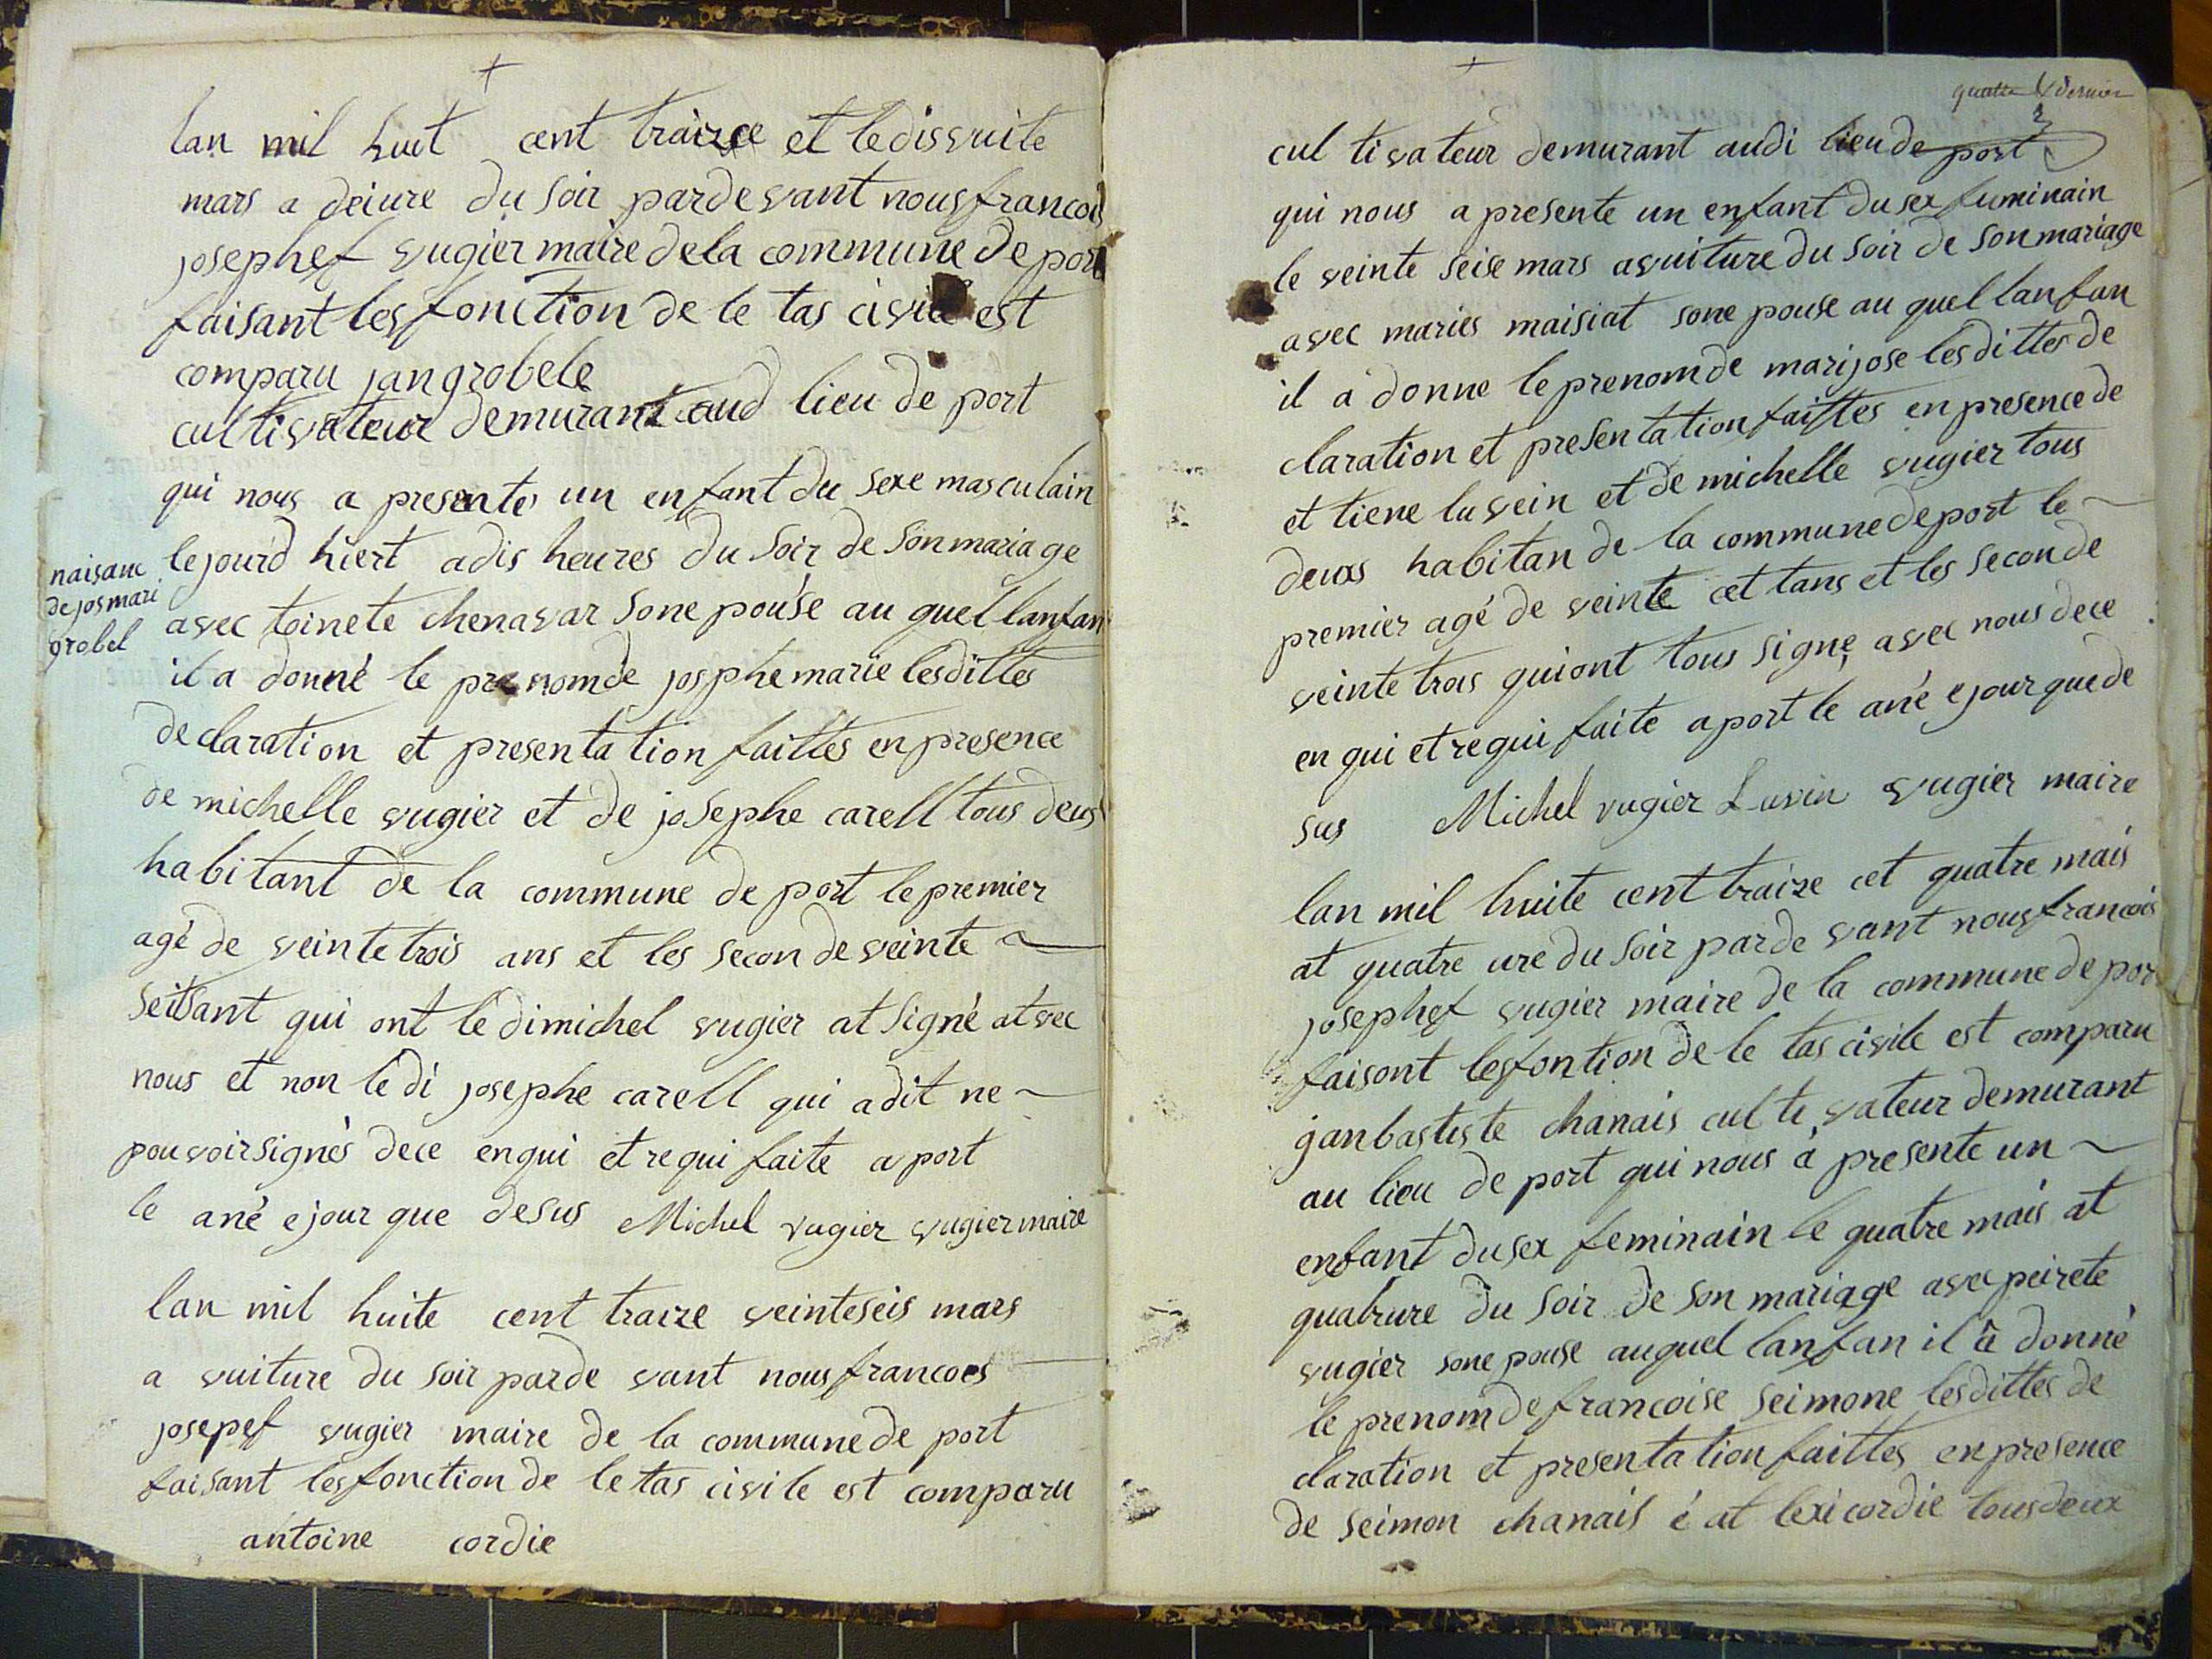 lan mil huit cent traize et le dis vuite
mars a deiure du soir par de vant nous francois
josephef vugier maire de la commune de port
faisant les fonction de le tas civile est
comparu jan grobele
cultivateur demurant aud lieu de port
qui nous a presente un enfant du sexe masculain
le jourd hiert a dis heures du soir de son mariage
naisanc
de jos mari
grobel
avec toinete chenavar son e pouse au quel lanfan
il a donné le prenom de josphe marie les dittes
declaration et presentation faittes en presence
de michelle vugier et de josephe carell tous deus
habitant de la commune de port le premier
agé de veinte trois ans et les secon de veinte
seitsant qui ont le di michel vugier at signé atvec
nous et non le di josephe carell qui a dit ne
pouvoir signés dece en qui et requi faite a port
le ané e jour que desus Michel vugier vugier maire
lan mil huite cent traize veinte seis mars
a vuiture du soir par de vant nous francoes
josepef vugier maire de la commune de port
faisant les fonction de le tas civile est comparu
antoine cordie
quatre 4 dernier
cul tivateur demurant audi lieu de port
qui nous a presente un enfant du sex fuminain
le veinte seise mars a vuiture du soir de son mariage
avec maries maisiat son e pouse au quel lanfan
il a donne le prenom de mari jose les dittes de
claration et presentation faittes en presence de
et tiene luvein et de michelle vugier tous
deuxs habitan de la commune de port le
premier agé de veinte cet tans et les secon de
veinte trois qui ont tous signe avec nous dece
en qui et requi faite a port le ané e jour que de
sus Michel vugier Luvin vugier maire
lan mil huite cent traize cet quatre mais
at quatre ure du soir par de vant nous francois
josephef vugier maire de la commune de por
faisont les fontion de le tas civile est comparu
jan bastiste chanais culti vateur demurant
au lieu de port qui nous a presente un
enfant du sex feminain le quatre mais at
quatrure du soir de son mariage avec peirete
vugier son e pouse au quel lanfan il a donné
le prenom de francoise seimone les dittes de
claration et presentation faittes en presence
de seimon chanais é at lexi cordie tous deux